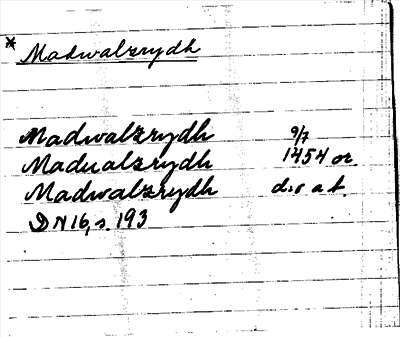 * Madwalzrydh
Madwalzrydh 9/7
Madualzrydh 1454 or.
Madwalzrydh d:o a t.
DN 16, s. 193